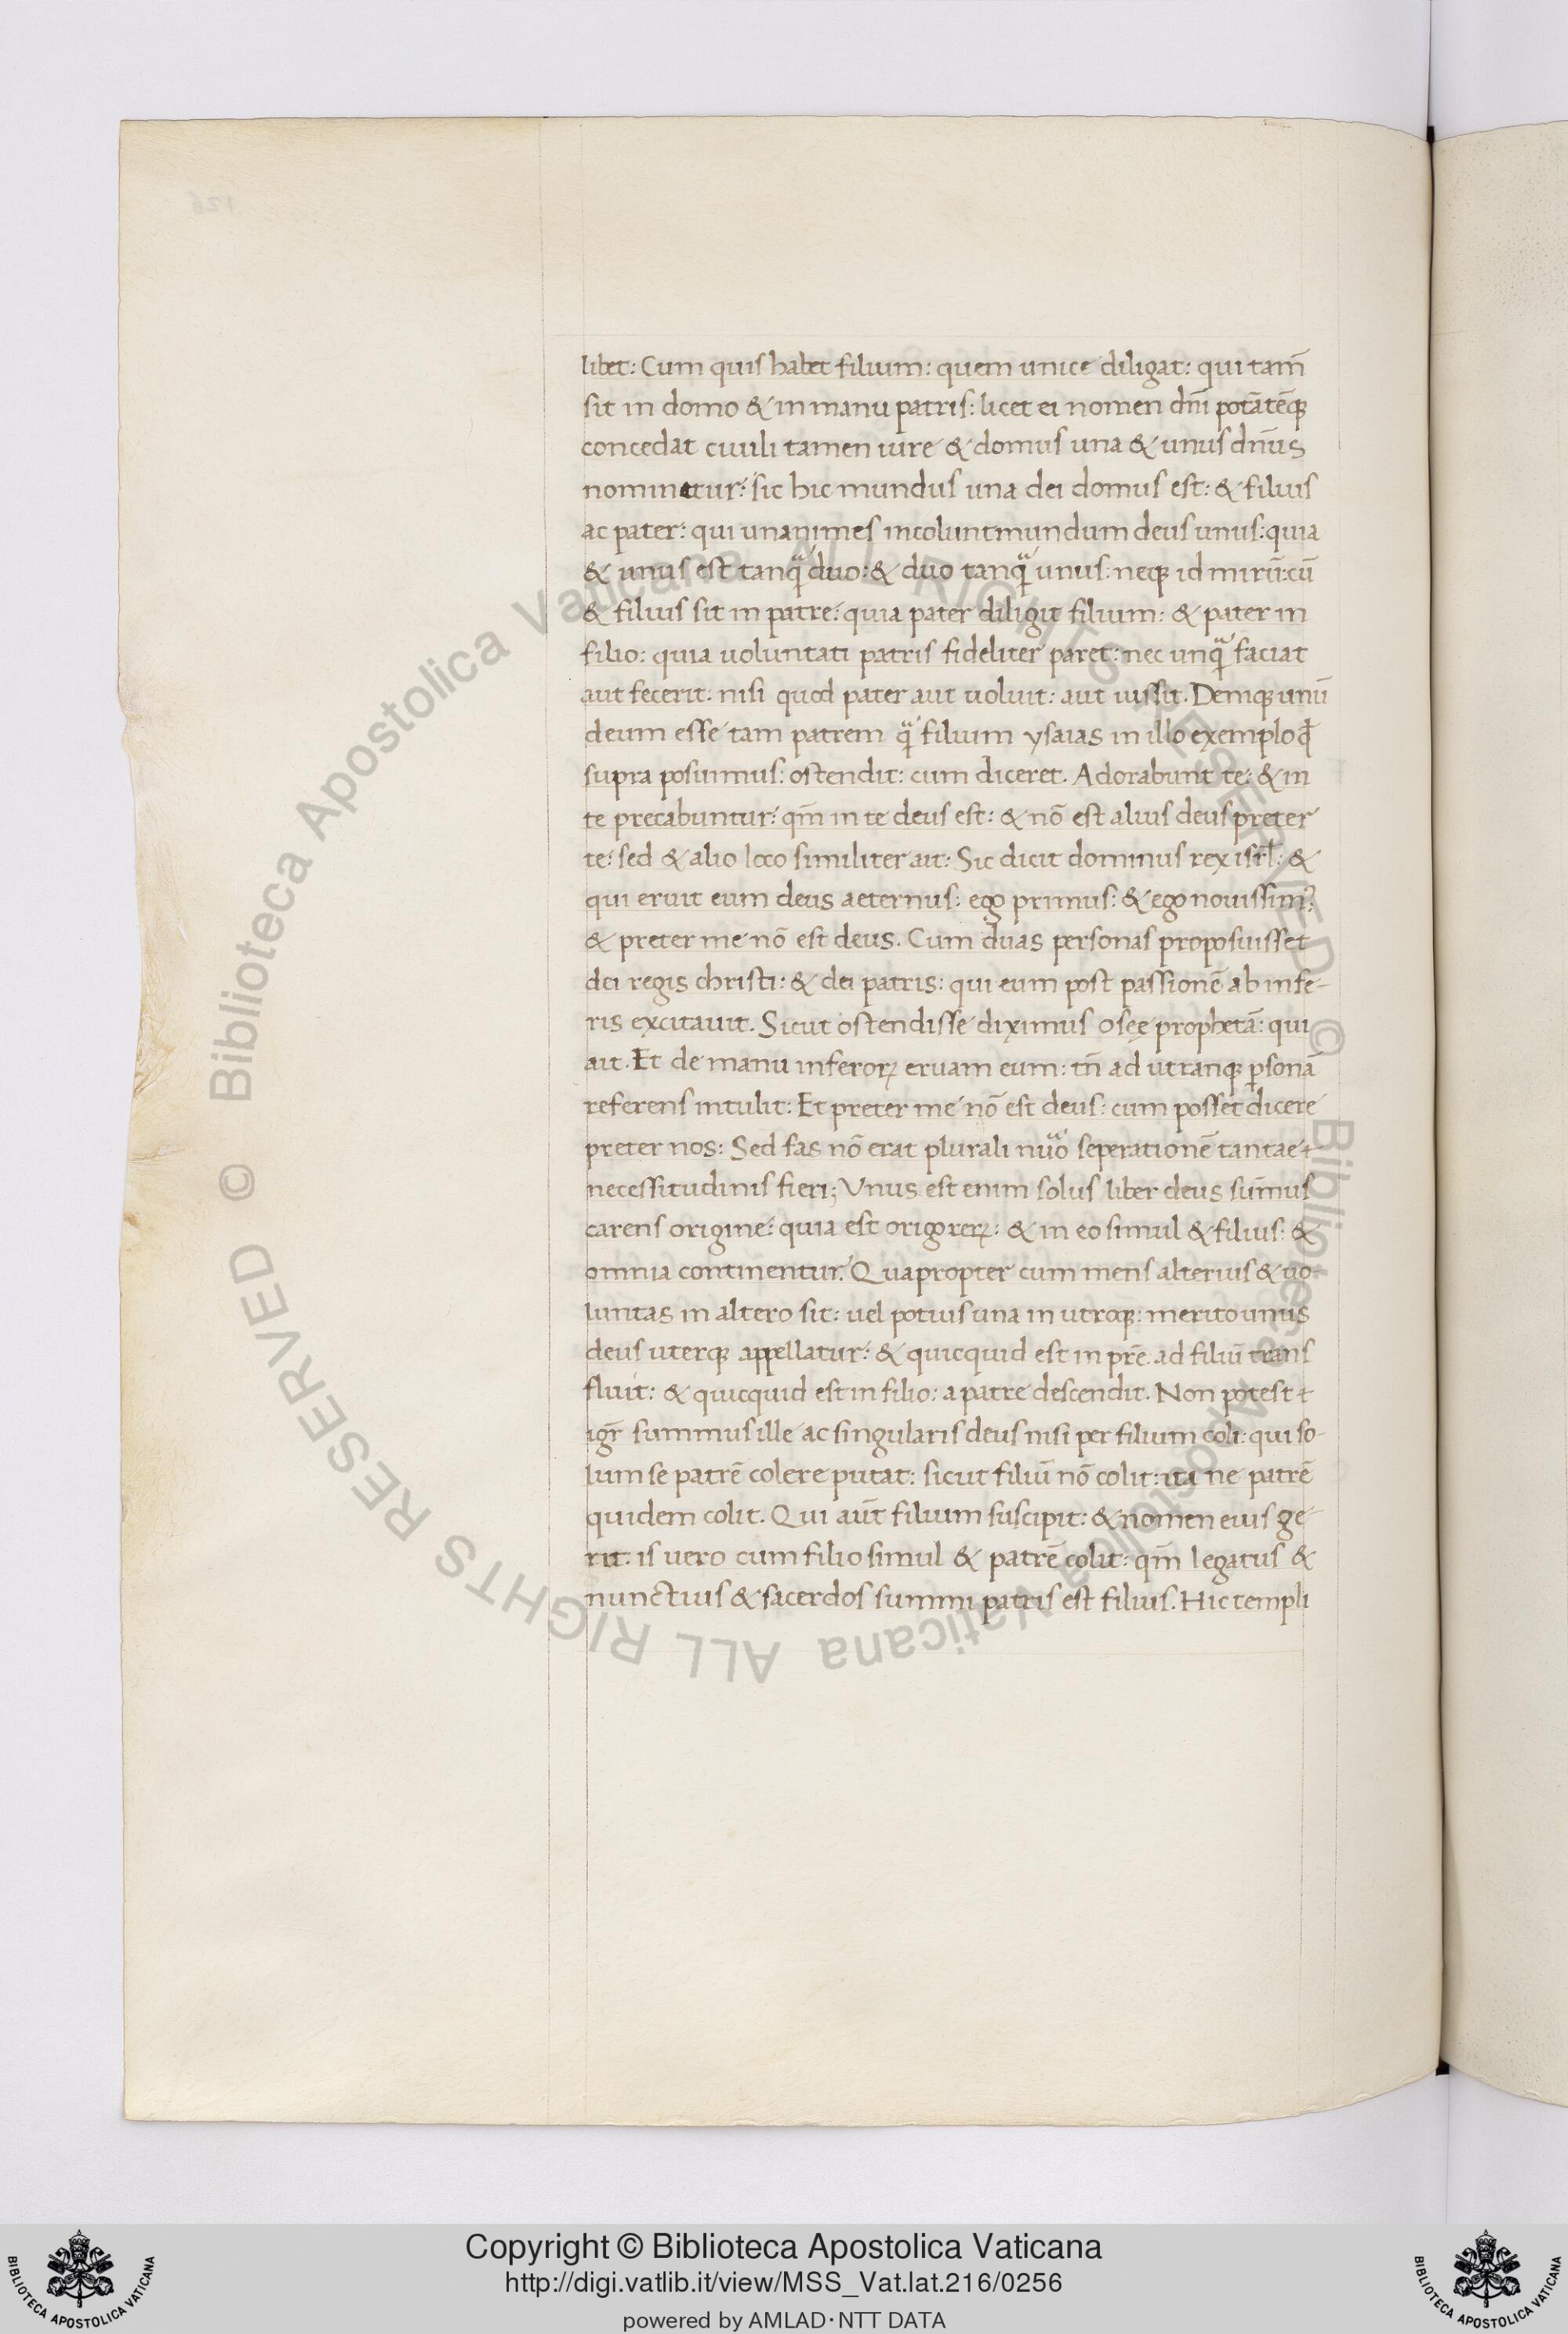 libet: Cum quis habet filium: quem unice diligat: qui tam̄
sit in domo & in manu patris: licet ei nomen dn̄i potātēq;
concedat ciuili tamen iure & domus una & unus dn̄us
nominatur: sic hic mundus una dei domus est: & filius
ac pater: qui unanimes incolunt mundum deus unus: quia
& unus est tanqͣ duo: & duo tanqͣ unus: neq; id mirū: cū
& filius sit in patre: quia pater diligit filium: & pater in
filio: quia uoluntati patris fideliter paret: nec unqͣ faciat
aut fecerit: nisi quod pater aut uoluit: aut iussit. Deniq; unū
deum esse tam patrem qͣ filium ysaias in illo exemplo qd̄
supra posuimus: ostendit: cum diceret. Adorabunt te: & in
te precabuntur: qm̄ in te deus est: & nō est alius deus preter
te: sed & alio loco similiter ait: Sic dicit dominus rex isrl̄: &
qui eruit eum deus aeternus: ego primus: & ego nouissimꝰ:
& preter me nō est deus. Cum duas personas proposuisset
dei regis christi: & dei patris: qui eum post passionē ab infe-
ris excitauit. Sicut ostendisse diximus oseę prophetā: qui
ait. Et de manu inferoꝝ eruam eum: tn̄ ad utranq; ꝑsonā
referens intulit: Et preter me nō est deus: cum posset dicere
preter nos: Sed fas nō erat plurali nūo seperationē tantae
necessitudinis fieri; Vnus est enim solus liber deus sum̄us
carens origine: quia est origo reꝝ: & in eo simul & filius: &
omnia continentur. Quapropter cum mens alterius & uo-
luntas in altero sit: uel potius una in utroq;: merito unus
deus uterq; appellatur: & quicquid est in pr̄e ad filiū trans
fluit: & quicquid est in filio: a patre descendit. Non potest
igr̄ summus ille ac singularis deus nisi per filium coli: qui so-
lum se patrē colere putat: sicut filiū nō colit: ita ne patrē
quidem colit. Qui aūt filium suscipit: & nomen eius ge-
rit: is uero cum filio simul & patrē colit: qm̄ legatus &
nunctius & sacerdos summi patris est filius. Hic templi
126
© Biblioteca Apostolica Vaticana ALL RIGHTS RESERVED © Biblioteca Apostolica Vaticana ALL RIGHTS RESERVED
BIBLIOTECA APOSTOLICA VATICANA
Copyright © Biblioteca Apostolica Vaticana
http://digi.vatlib.it/view/MSS_Vat.lat.216/0256
powered by AMLAD·NTT DATA
BIBLIOTECA APOSTOLICA VATICANA